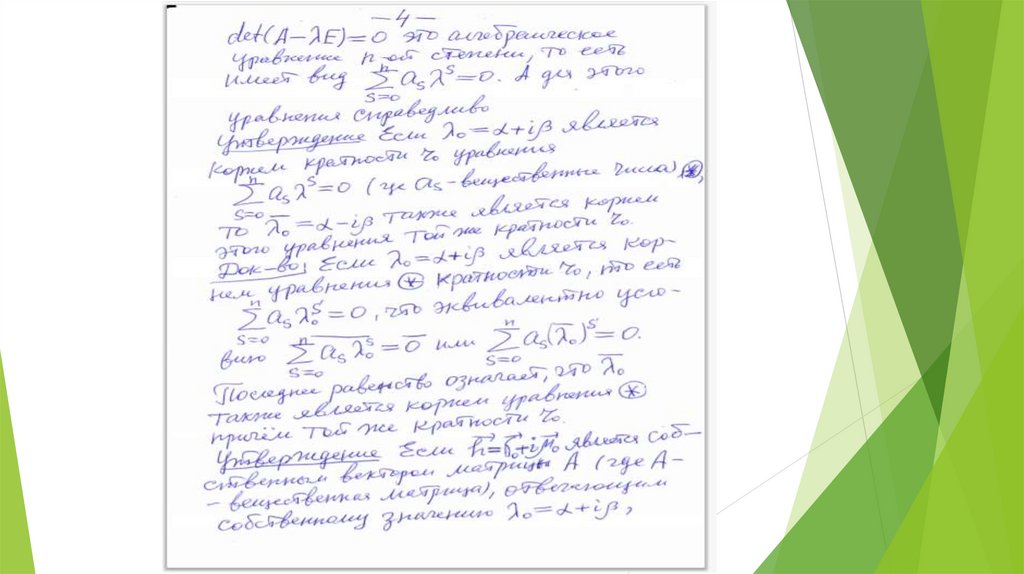 —4—
det(A−λE)=0 это алгебраическое
уравнение n-ой степени, то есть
имеет вид ∑_{s=0}^{n} a_s λ^s = 0. А для этого
уравнения справедливо
Утверждение Если λ₀=α+iβ является
корнем кратности r₀ уравнения
∑_{s=0}^{n} a_s λ^s = 0 (где a_s - вещественные числа) (*),
то λ̄₀=α−iβ также является корнем
этого уравнения той же кратности r₀.
Док-во: Если λ₀=α+iβ является кор-
нем уравнения (*) кратности r₀, то есть
∑_{s=0}^{n} a_s λ₀^s = 0, что эквивалентно усло-
вию ∑_{s=0}^{n} \overline{a_s λ₀^s} = \overline{0} или ∑_{s=0}^{n} a_s(λ̄₀)^s = 0.
Последнее равенство означает, что λ̄₀
также является корнем уравнения (*)
причём той же кратности r₀.
Утверждение Если является соб-
ственным вектором матрицы А (где А-
- вещественная матрица), отвечающим
собственному значению λ₀=α+iβ,